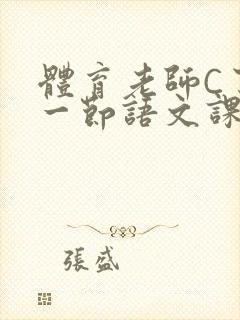 體育老師C
一節語文課
張盛